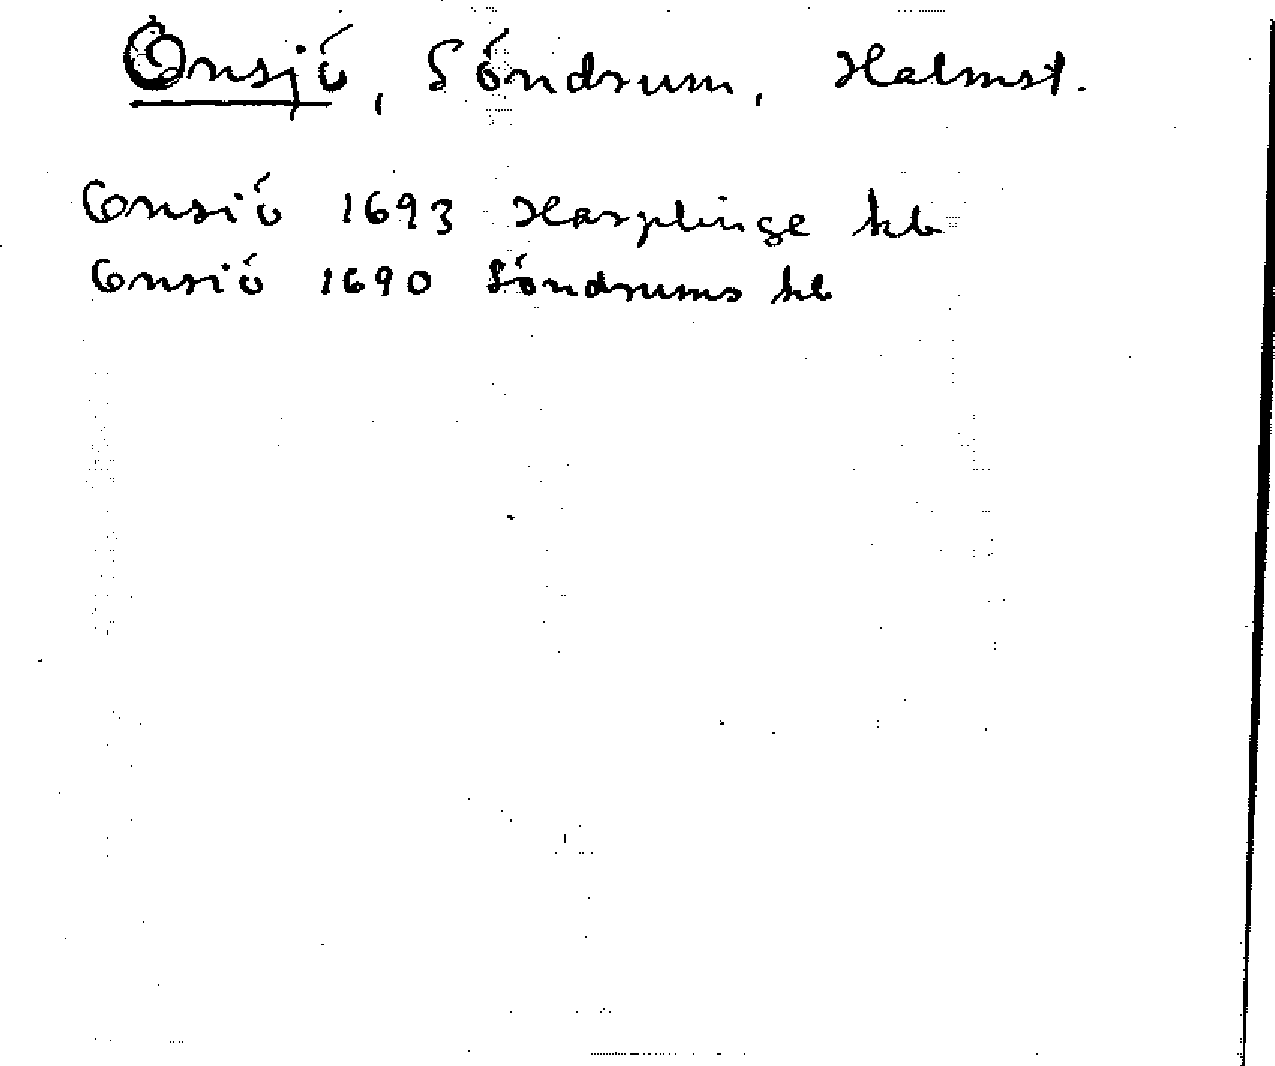 Onsjö, Söndrum, Halmst.
Onsiö 1693 Harplinge kb
Onsiö 1690 Söndrums kb